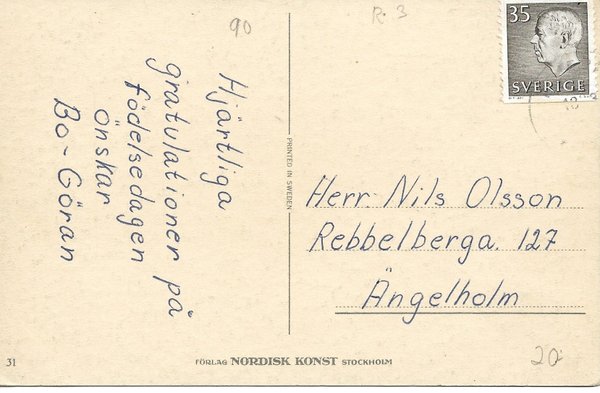 90
R. 3
35
SVERIGE
Hjärtliga
gratulationer på
födelsedagen
önskar
Bo-Göran
PRINTED IN SWEDEN
Herr Nils Olsson
Rebbelberga. 127
Ängelholm
31
FÖRLAG NORDISK KONST STOCKHOLM
20